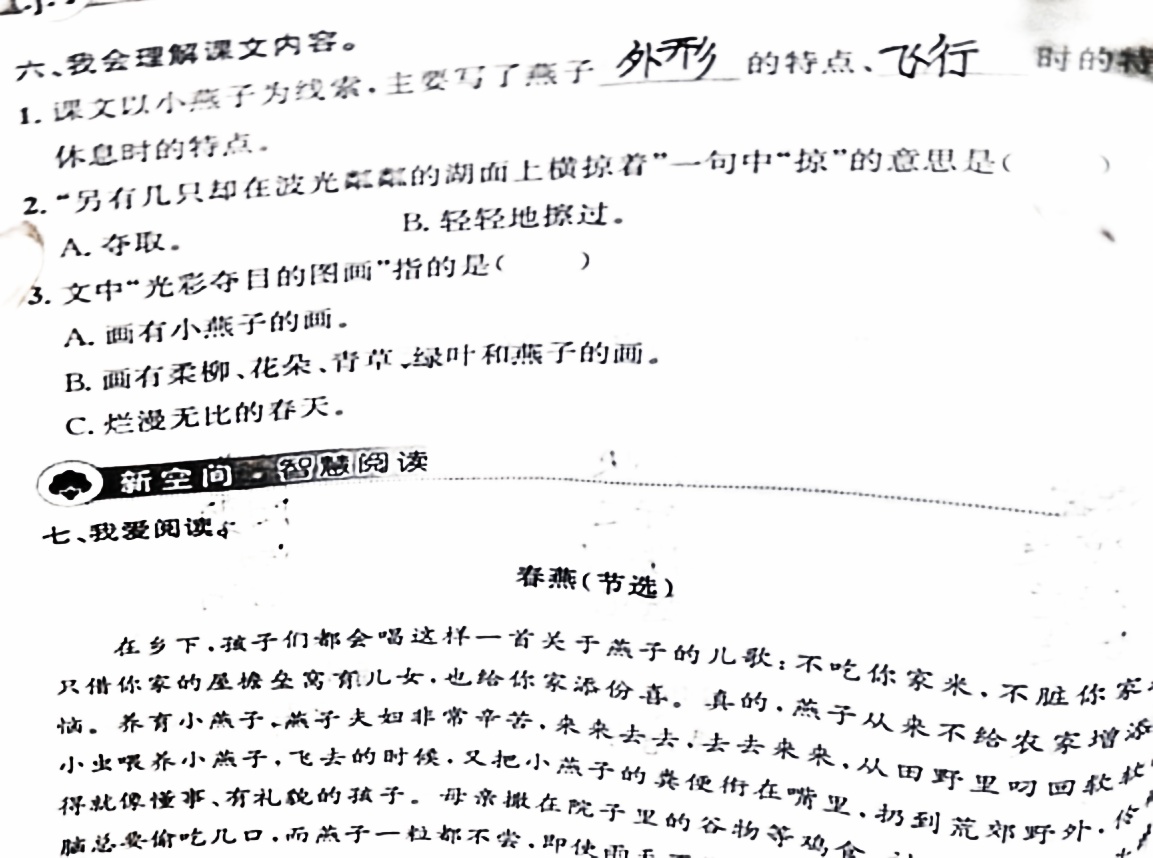 六、我会理解课文内容。
1. 课文以小燕子为线索,主要写了燕子 外形 的特点、飞行 时的特
休息时的特点。
2. “另有几只却在波光粼粼的湖面上横掠着”一句中“掠”的意思是( )
A. 夺取。 B. 轻轻地擦过。
3. 文中“光彩夺目的图画”指的是( )
A. 画有小燕子的画。
B. 画有柔柳、花朵、青草、绿叶和燕子的画。
C. 烂漫无比的春天。
新空间·智慧阅读
七、我爱阅读。
春燕(节选)
在乡下,孩子们都会唱这样一首关于燕子的儿歌:不吃你家米,不脏你家
只借你家的屋檐垒窝育儿女,也给你家添份喜。真的,燕子从来不给农家增添
恼。养育小燕子,燕子夫妇非常辛苦,来来去去,去去来来,从田野里叼回软软
小虫喂养小燕子,飞去的时候,又把小燕子的粪便衔在嘴里,扔到荒郊野外,
得就像懂事、有礼貌的孩子。母亲撒在院子里的谷物等鸡食
脑总要偷吃几口,而燕子一粒都不尝,即使雨天